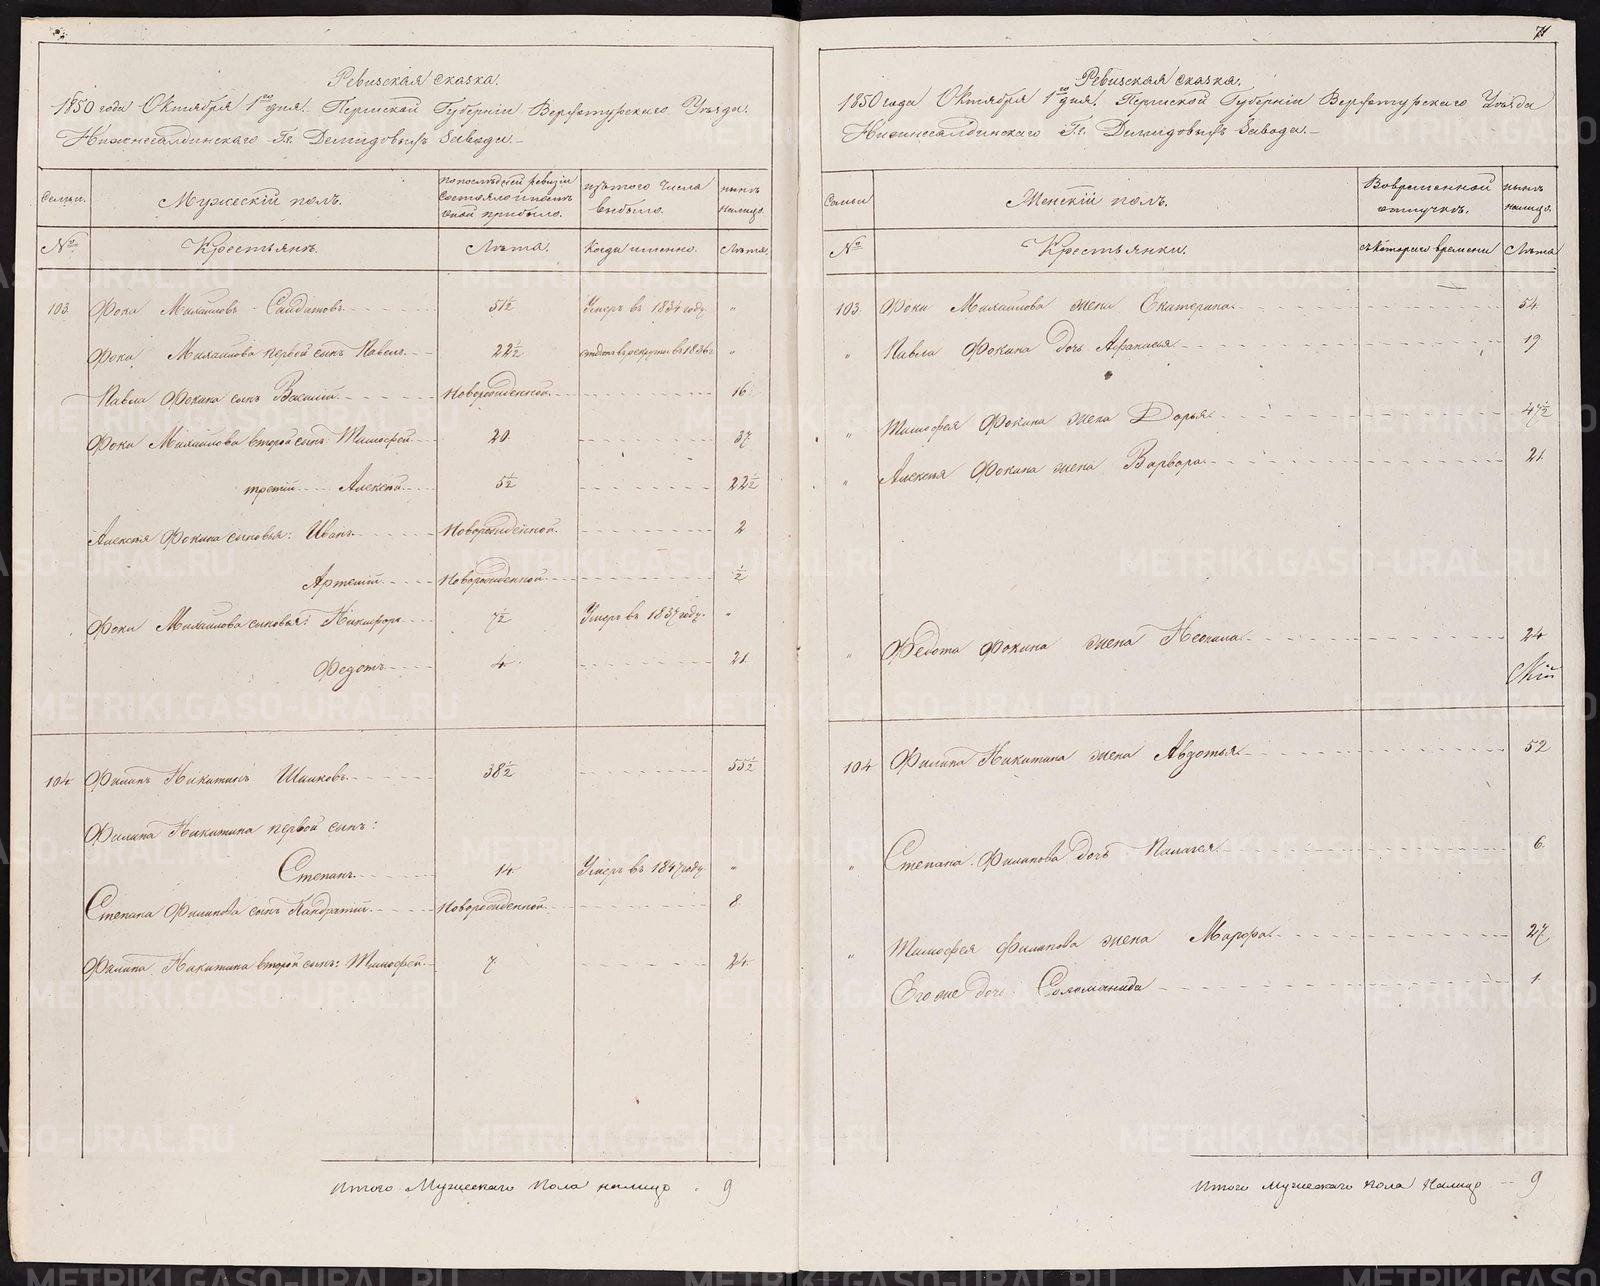 Ревизская сказка.
1850 года Октября 1го дня. Пермской Губерніи Верхотурскаго Уѣзда.
Нижнесалдинскаго Гг. Демидовыхъ Завода.
Семьи. Мужескій полъ. По послѣдней ревизіи состояло и послѣ оной прибыло. Изъ того числа выбыло. Нынѣ налицо.
№ Крестьянъ. Лѣта. Когда именно. Лѣта.
103. Фока Михайловъ 51½ Умеръ въ 1834 году. "
Фоки Михайлова первой сынъ Павелъ. 22½ отданъ въ рекруты въ 1836 г. "
Павла Фокина сынъ Василій. Новорожденной. 16.
Фоки Михайлова второй сынъ Тимофей. 20. 37.
третій Алексѣй. 5½ 22½
Алексѣя Фокина сыновья: Иванъ. Новорожденной. 2
Артемій. Новорожденной ½
Фоки Михайлова сыновья: Никифоръ 7½ Умеръ въ 1837 году. "
Федотъ. 4. 21.
104. Филипъ Никитинъ 38½ 55½
Филипа Никитина первой сынъ:
Степанъ. 14. Умеръ въ 1847 году "
Степана Филипова сынъ Кандратій. Новорожденной. 8.
Филипа Никитина второй сынъ: Тимофей. 7 24.
Итого Мужескаго Пола налицо 9
71
Ревизская сказка.
1850 года Октября 1го дня. Пермской Губерніи Верхотурскаго Уѣзда
Нижнесалдинскаго Гг. Демидовыхъ Завода.
Семьи Женскій полъ. Во временной отлучкѣ. Нынѣ налицо.
№ Крестьянки. съ котораго времени Лѣта
103. Фоки Михайлова жена Екатерина. 54.
" Павла Фокина дочь Афанасья 19.
" Тимофея Фокина жена Дарья. 47½
" Алексѣя Фокина жена Варвара. 21.
" Федота Фокина жена Неонила. 24
104. Филипа Никитина жена Авдотья. 52
" Степана Филипова дочь Палагея 6.
" Тимофея Филипова жена Марфа. 27
Его же дочь Соломонида 1.
Итого Мужескаго пола Налицо 9
METRIKI.GASO-URAL.RU